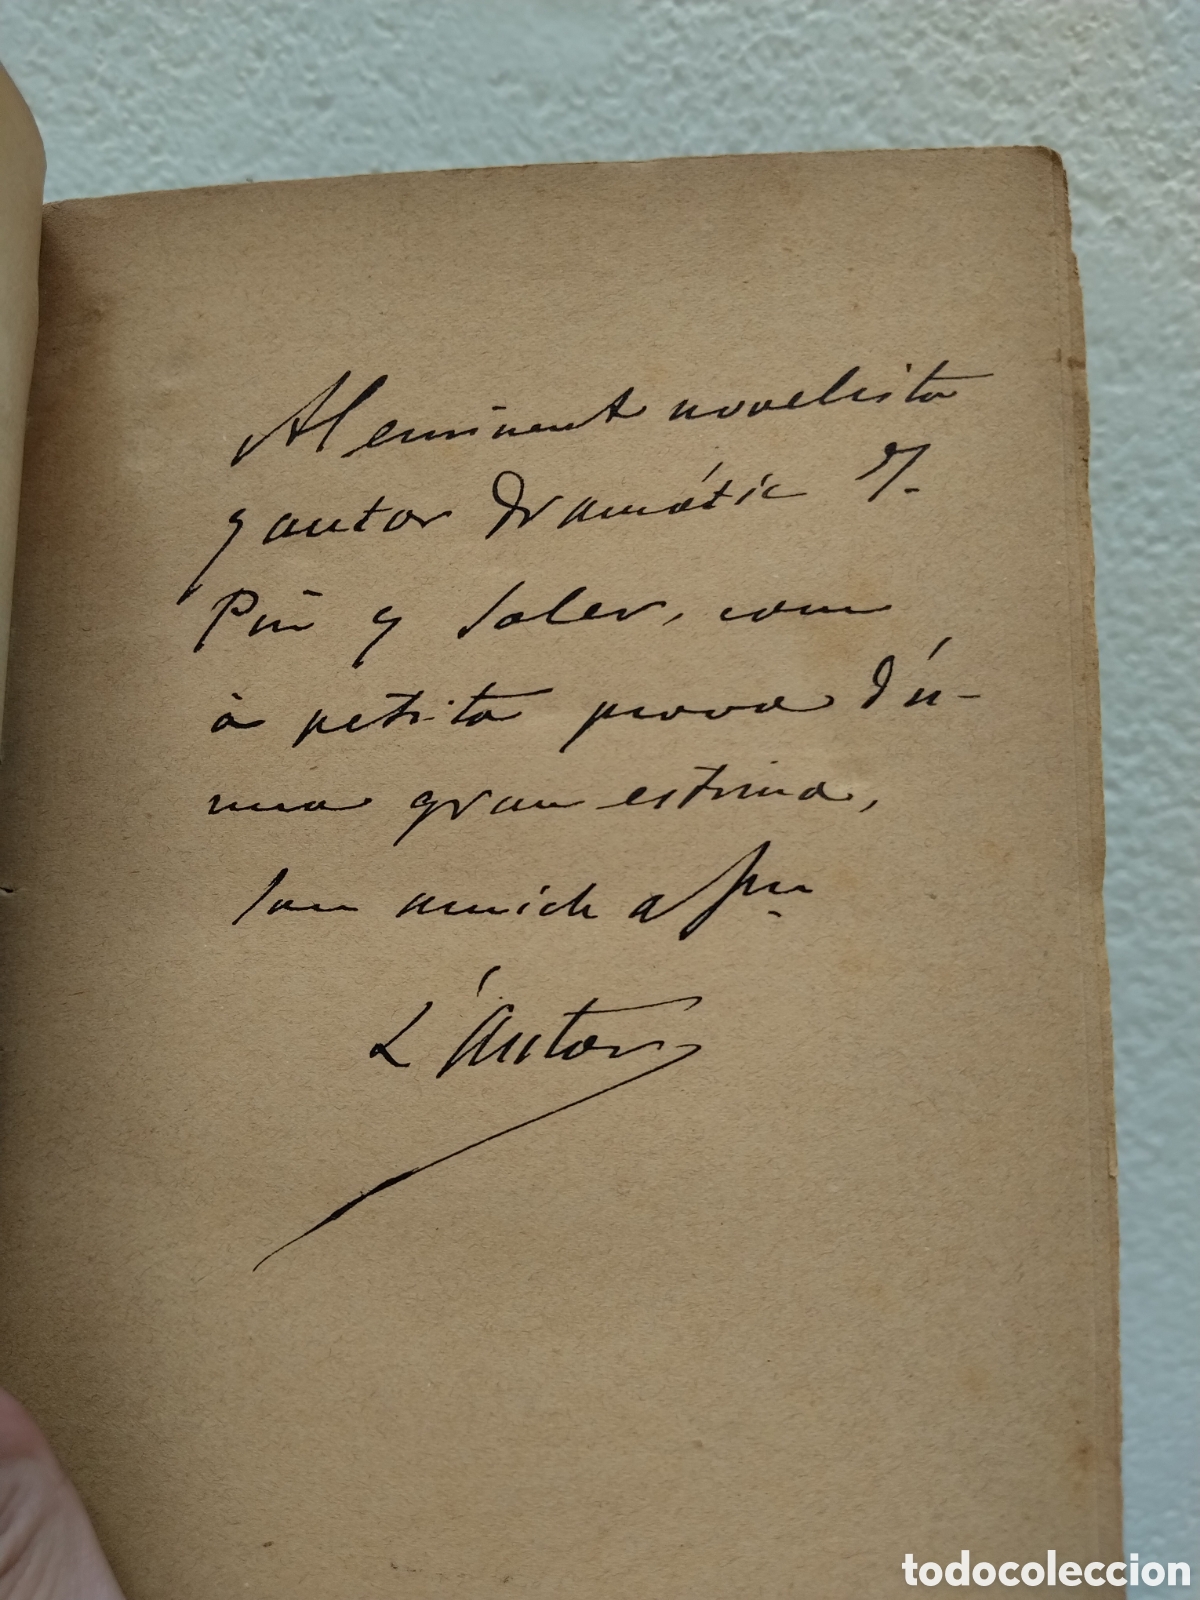 Al eminent novelista
y autor dramátic J.
Pin y Soler, com
á petita prova d'u-
na gran estima,
son amich afm.
L'Autor
todocoleccion